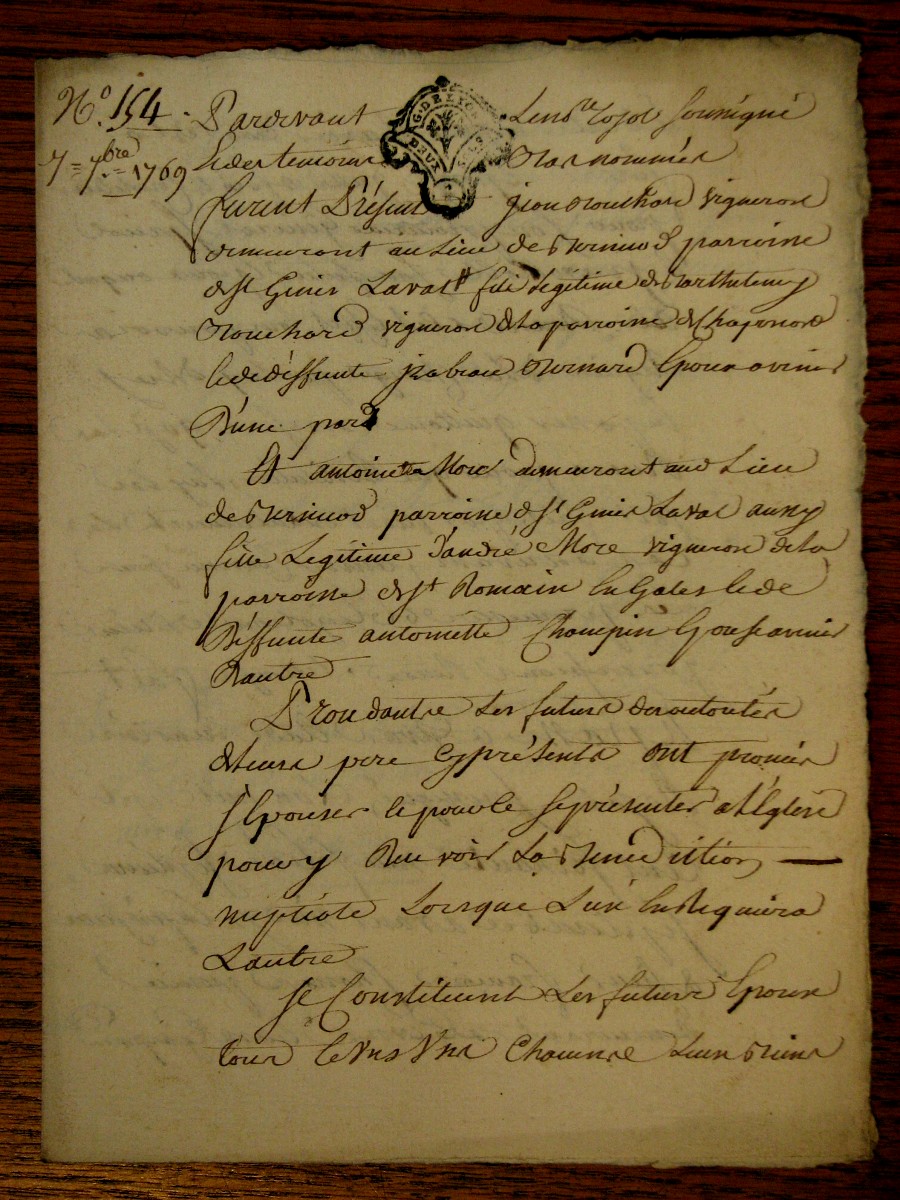 N.o 154.
7 = 7.bre = 1769
G. DE LYON
DEUX SOLS
Pardevant Le no.re royal soussigné
et des temoins bas nommés
furent Présent jean Bouchard vigneron
demeurant au Lieu de parroisse
de st Genis Laval fils légitime de Barthelemy
Bouchard vigneron de la parroisse de Chaponost
et de déffunte jzabeau Bernard Epoux avenir
D'une part
Et antoinette More demeurant aud Lieu
de parroisse de st Genis Laval aussy
fille Legitime d'andré More vigneron de la
parroisse de st Romain En Gales et de
Déffunte antoinette Champin Epouse avenir
D'autre
D'vantre Les futurs de
de Leurs pere cy présents ont promis
s'Epouser et pour ce se présenter a L'Eglise
pour y Recevoir La Benediction
nuptiale Lorsque L'un En Requierra
L'autre
se Constituent Les futurs Epoux
tous Les Biens